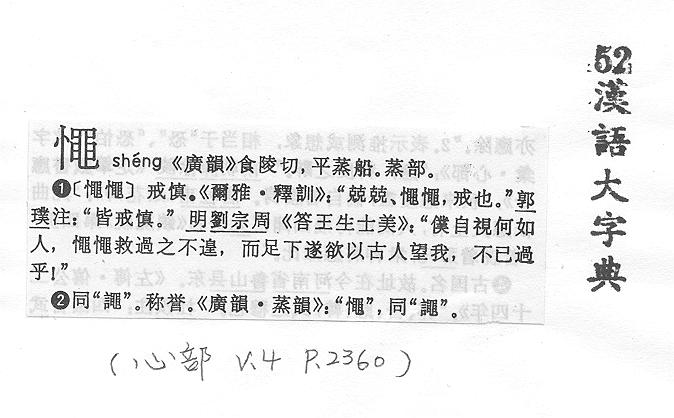 52漢語大字典
憴 shéng《廣韻》食陵切，平蒸船。蒸部。
❶〔憴憴〕戒慎。《爾雅·釋訓》：“兢兢、憴憴，戒也。”郭
璞注：“皆戒慎。” 明劉宗周《答王生士美》：“僕自視何如
人，憴憴救過之不遑，而足下遂欲以古人望我，不已過
乎！”
❷同“譝”。称誉。《廣韻·蒸韻》：“憴”，同“譝”。
(心部 V.4 P.2360)